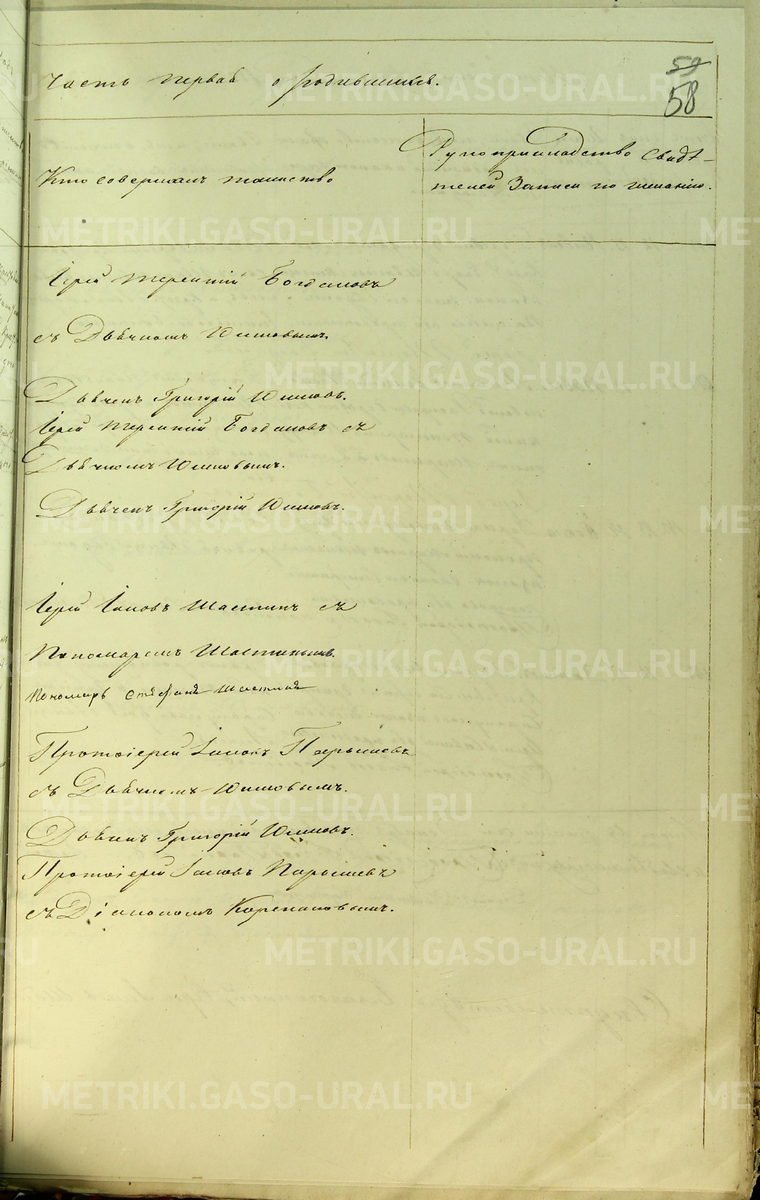 Часть первая о родившихся.
59
58
Кто совершалъ таинство
Рукоприкладство Свидѣ-
телей Записи по желанію.
Іерей Терентій Богдановъ
съ Дьячкомъ Юшковымъ.
Дьячекъ Григорій Юшковъ.
Іерей Терентій Богдановъ съ
Дьячкомъ Юшковымъ.
Дьячекъ Григорій Юшковъ.
Іерей Іаковъ Шастинъ съ
Пономаремъ Шастинымъ.
Пономарь Стефанъ Шастинъ
Протоіерей Іаковъ
съ Дьячкомъ Юшковымъ.
Дьячекъ Григорій Юшковъ.
Протоіерей Іаковъ
съ Діакономъ Корепановымъ.
METRIKI.GASO-URAL.RU